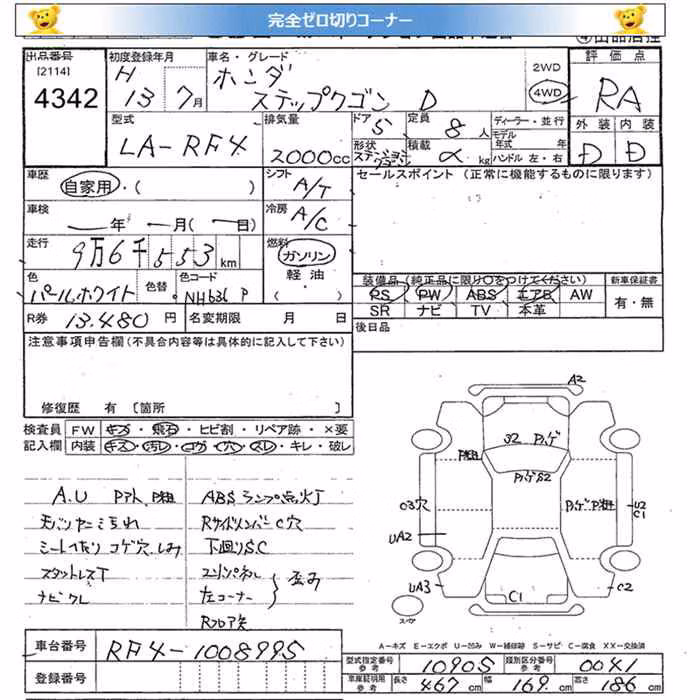 完全ゼロ切りコーナー
出品番号
[2114]
4342
初度登録年月
H 13 7月
車名・グレード
ホンダ
ステップワゴン D
2WD
4WD
評価点
RA
型式
LA-RF4
排気量
2000cc
ドア 5
形状
ステーションワゴン
定員 8人
積載 α kg
ディーラー・並行
モデル
年式 年
ハンドル 左・右
外装 内装
D D
車歴
自家用・( )
シフト
A/T
セールスポイント (正常に機能するものに限ります)
車検
年 月( 日)
冷房
A/C
走行
9万6千553km
燃料
ガソリン
軽油
・
色
パールホワイト
色替
色コード
NH636P
装備品(純正品に限り○をつけてください)
PS PW ABS エアB AW
SR ナビ TV 本革
新車保証書
有・無
R券 13,480円
名変期限 月 日
後日品
注意事項申告欄(不具合内容等は具体的に記入して下さい)
修復歴 有〔箇所 〕
検査員
記入欄
FW キズ・飛石・ヒビ割・リペア跡・×要
内装 キズ・汚レ・コゲ・穴・スレ・キレ・破レ
A2
S2
O3穴
UA2
UA3
U2
C1
C2
C1
スペア
A.U
ABSランプ点灯
RサイドメンバーC穴
下廻りS.C
左コーナー
ナビクレ
車台番号 RF4-1008995
登録番号
A-キズ E-エクボ U-凹み W-補修跡 S-サビ C-腐食 XX-交換済
型式指定番号
参考
10905
類別区分番号
参考
0041
車庫証明用
参考
長さ 467cm 幅 169cm 高さ 186cm